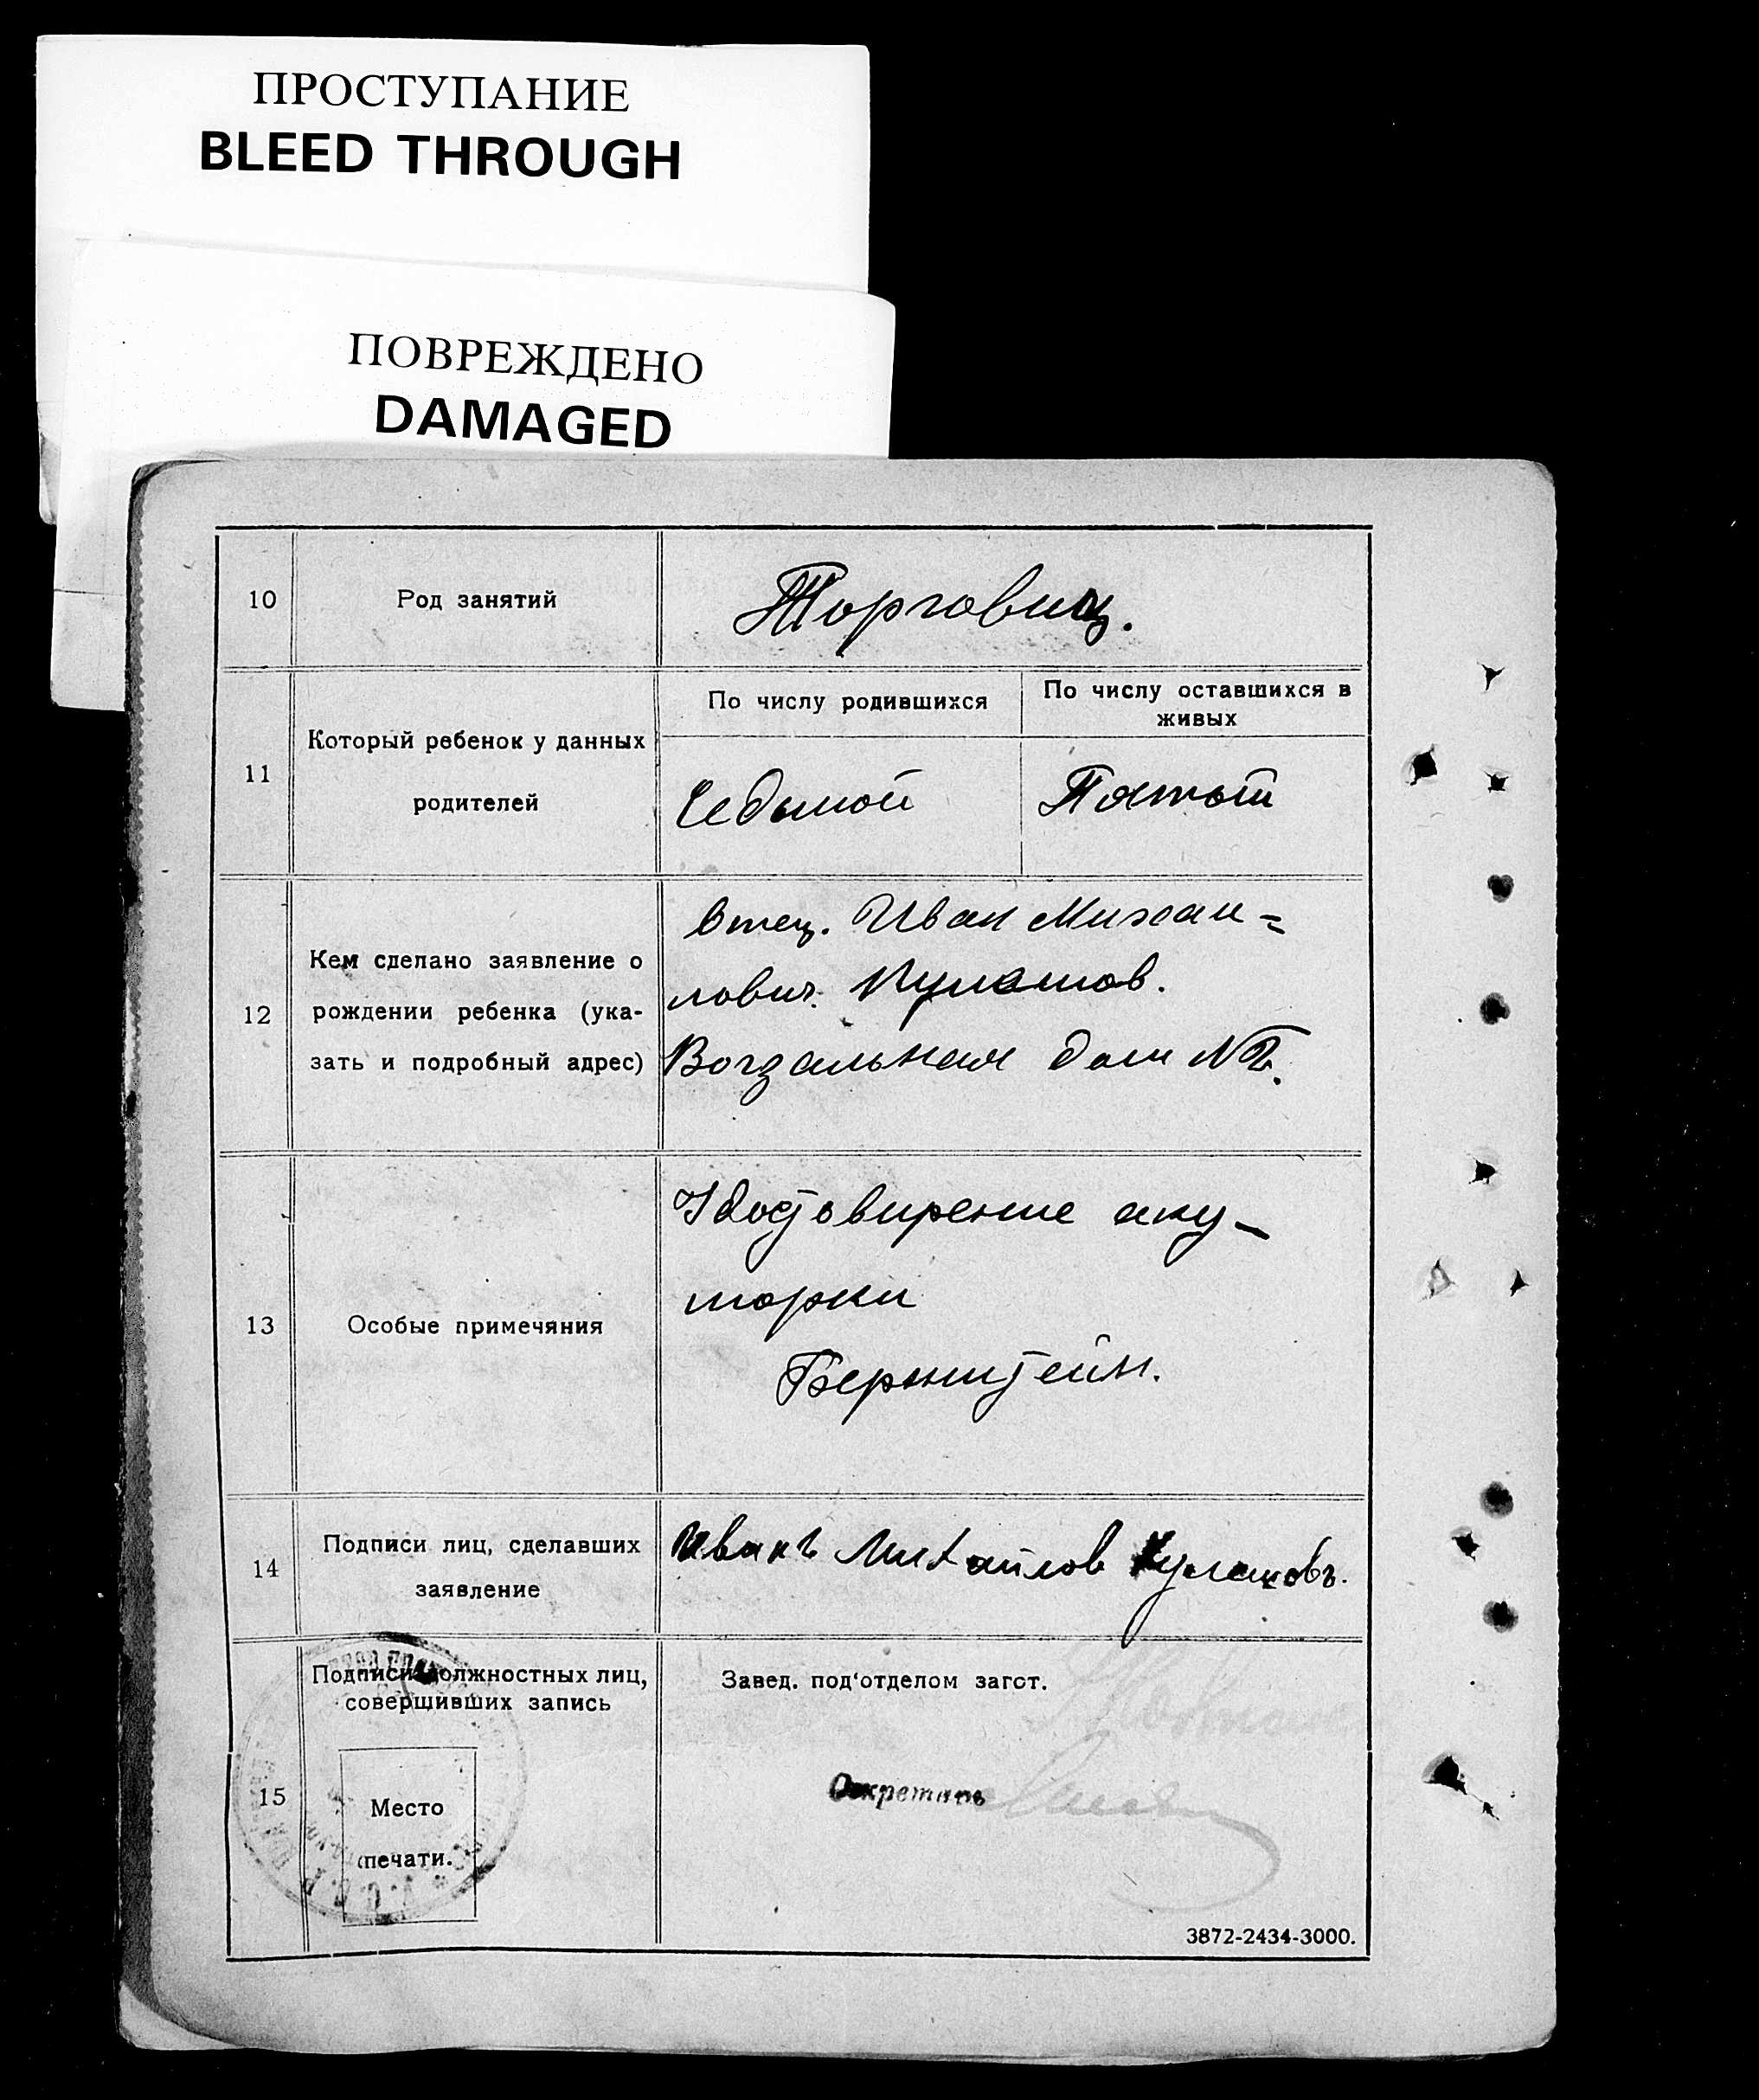 ПРОСТУПАНИЕ
BLEED THROUGH
ПОВРЕЖДЕНО
DAMAGED
10
Род занятий
Торговец.
11
Который ребенок у данных
родителей
По числу родившихся
По числу оставшихся в
живых
Седьмой
Пятый
12
Кем сделано заявление о
рождении ребенка (ука-
зать и подробный адрес)
Отец. Иван Михаи=
лович.
Вогзальная дом №
13
Особые примечяния
аку-
шорки
Бернштейн.
14
Подписи лиц, сделавших
заявление
Иванъ Михайлов
15
Подписи должностных лиц,
совершивших запись
Место
печати.
Завед. под'отделом загст.
Секретарь
3872-2434-3000.